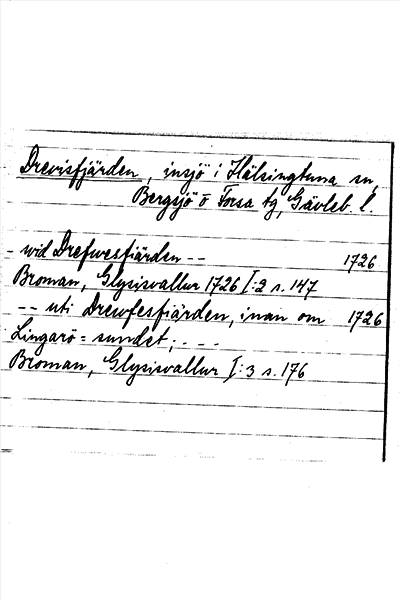 Drevisfjärden, insjö i Hälsingtuna sn,
Bergsjö o Forsa tg, Gävleb. l.
- wid Drefwesfiärden -- 1726
Broman, Glysisvallur 1726 I:2 s. 147
-- uti Drewfesfiärden, inan om 1726
Lingarö=sundet; - - -
Broman, Glysisvallur I:3 s. 176